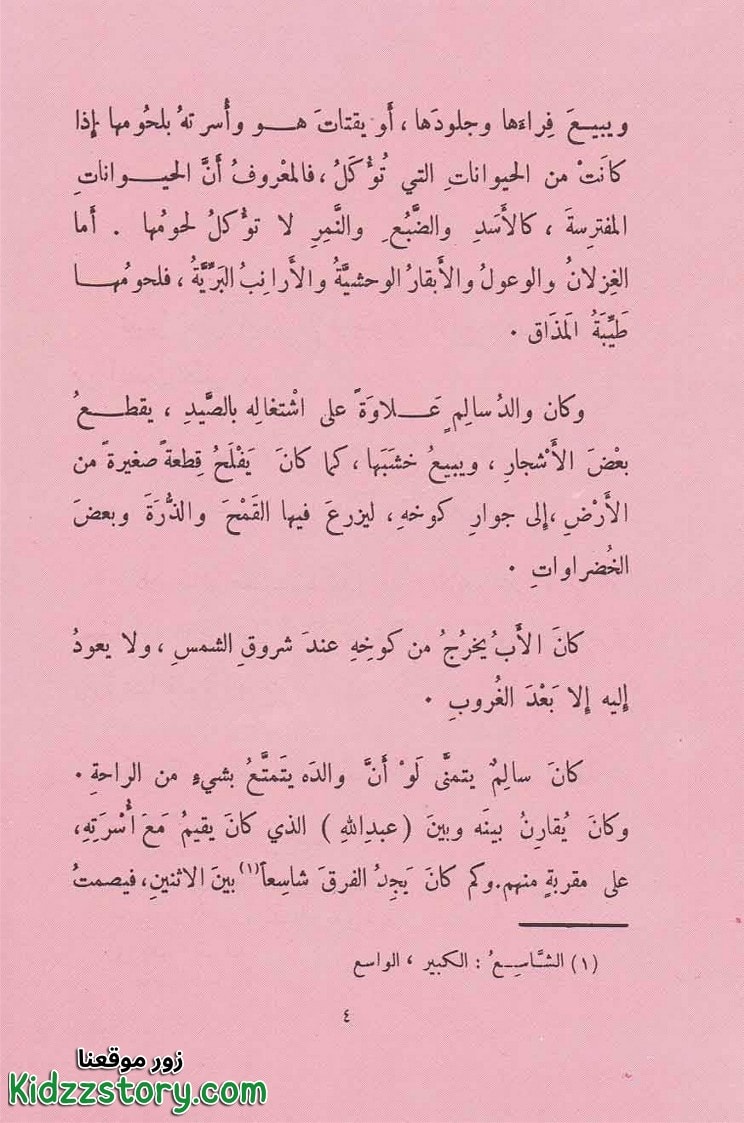 ويبيعَ فِراءَها وجلودَها، أَو يقتاتَ هــو وأُسرتهُ بلحُومها إِذا
كانَتْ من الحيواناتِ التي تُؤْكَلُ، فالمعْروفُ أَنَّ الحيــواناتِ
المفترِسةَ، كالأَسَدِ والضَّبُعِ والنَّمِرِ لا تؤْكلُ لحومُها . أَما
الغِزلانُ والوعولُ والأَبقارُ الوحشيَّةُ والأَرانِبُ البَرِّيَّةُ، فلحومُهــا
طَيِّبَةُ المَذَاق .
وكان والدُ سالِمٍ عَــلاوَةً على اشْتغالِه بالصَّيدِ، يقطــعُ
بعْضَ الأَشْجارِ، ويبيعُ خشَبَها، كما كانَ يَفْلَحُ قِطعةً صغيرةً من
الأَرْضِ، إلى جوارِ كوخهِ، ليزرعَ فيها القَمْحَ والذُّرَةَ وبعضَ
الخُضراواتِ .
كانَ الأَبُ يخرُجُ من كوخِهِ عندَ شروقِ الشمسِ، ولا يعودُ
إليه إلا بَعْدَ الغُروبِ .
كانَ سالِمٌ يتمنَّى لَوْ أَنَّ والدَه يَتَمتَّعُ بشيءٍ من الراحةِ .
وكانَ يُقارِنُ بينَه وبينَ (عبدِاللهِ) الذي كانَ يقيمُ مَعَ أُسْرَتِهِ،
على مقربةٍ منهم. وكم كانَ يَجِدُ الفرقَ شاسِعاً(١) بينَ الاثنينِ، فيصمتُ
(١) الشَّاسِــعُ : الكبير، الواسع
٤
زور موقعنا
Kidzzstory.com